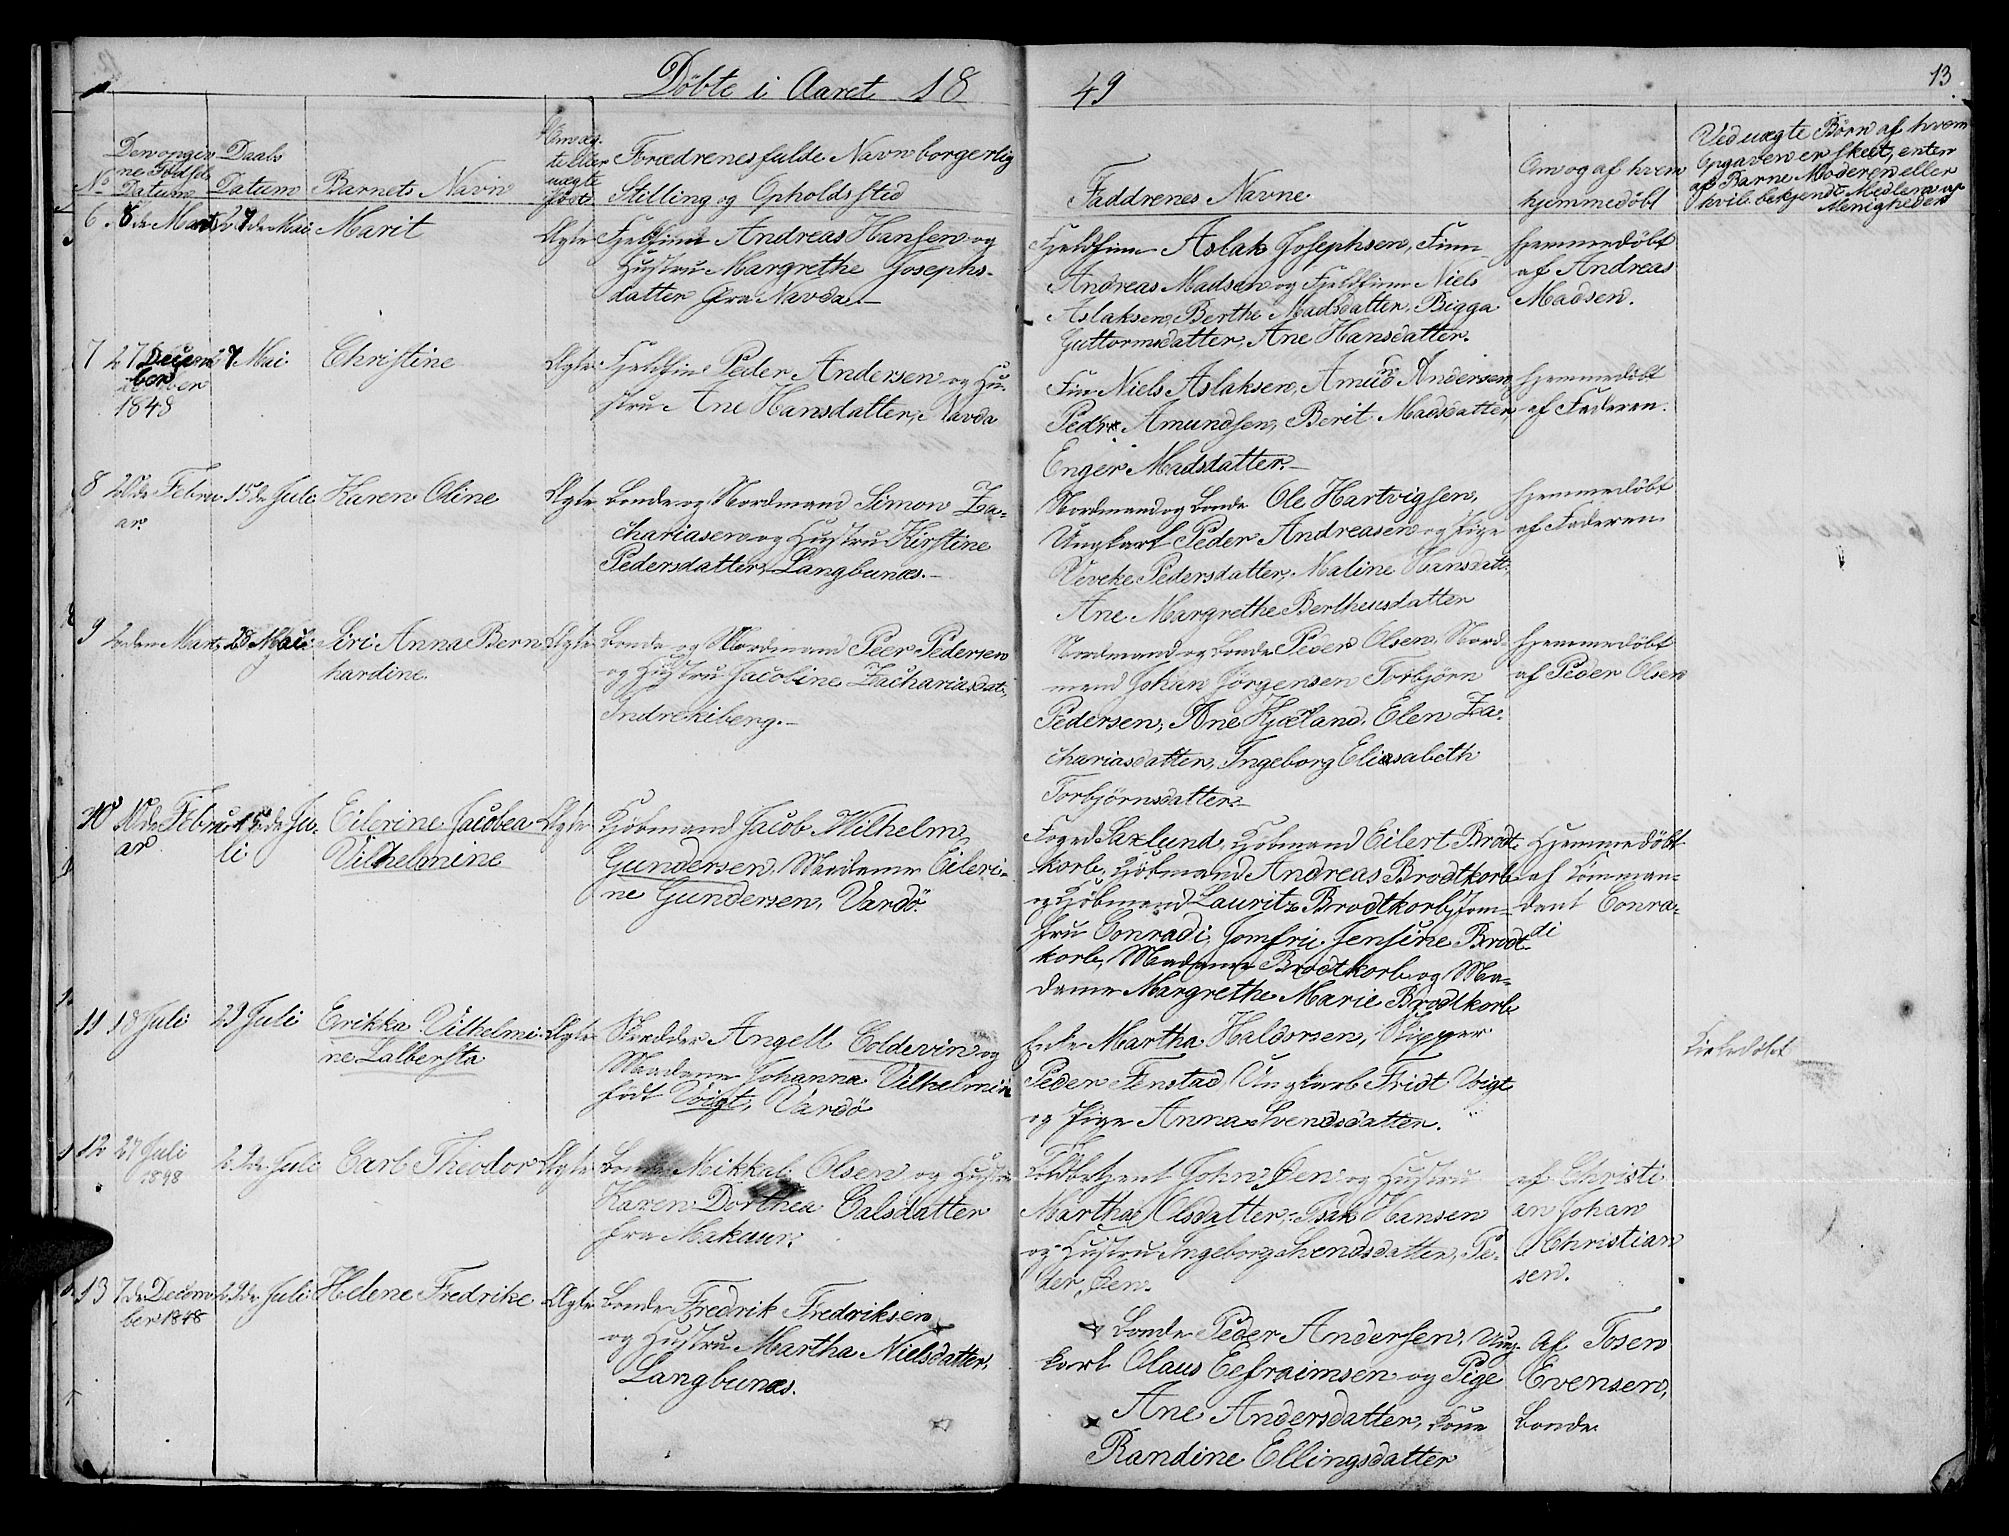 Döbte i Aaret 18 49
13
No
Den opgivne Födsels Datum
Daabs Datum
Barnets Navn
Om ægte eller uægte født
Forældrenes fulde Navn borgerlig
Stilling og Opholdssted
Faddrenes Navne
Om og af hvem
hjemmedöbt
Ved uægte Börn af hvem
Opgaven er skeet, enten
af Barne Moderen eller
hvilk bekjendt Medlem af
Menigheden
6. 8de Marts 27de Mai Marit Ægte Fjeldfinn Andreas Hansen og
Hustru Margrethe Josephs-
datter fra Navda.-
Fjeldfinn Aslak Josephsen, Finn
Andreas Madsen og Fjeldfinn Niels
Aslaksen, Berthe Madsdatter, Bigga
Guttormsdatter, Ane Hansdatter.
Hjemmedöbt
af Andreas
Madsen.
7 27 Decem
ber
1848
27 Mai Christine Ægte Fjeldfin Peder Andersen og Hu-
stru Ane Hansdatter, Navda
Fin Niels Aslaksen, Amund Andersen,
Peder Amundsen, Berit Madsdatter,
Enger Madsdatter.-
Hjemmedöbt
af Faderen.
8 20de Febru
ar
15de Juli Karen Oline Ægte Bonde og Nordmand Simon Za-
chariasen og Hustru Kirstine
Pedersdatter, Langbunes.-
Nordmand og Bonde Ole Hartvigsen,
Ungkarl Peder Andreasen og Pige
Veveke Pedersdatter, Maline Hansdatt,
Ane Margrethe Bertheusdatter
Hjemmedöbt
af Faderen
9 Marts 28 Mai Siri Anna Bern
hardine.
Ægte Bonde og Nordmand Peer Pedersen
og Hustru Jacobine Zachariasdat,
Indrekiberg.-
Nordmand og Bonde Peder Olsen, Nord-
mand Johan Jörgensen Torbjörn
Pedersen, Ane Kjærland, Elen Za-
chariasdatter, Ingeborg Eliasabeth
Torbjörnsdatter.-
Hjemmedöbt
af Peder Olsen
10 10de Febru
ar
15de Ju-
li
Eilerine Jacobea
Vilhelmine
Ægte Kjöbmand Jacob Wilhelm
Gundersen, Madame Eileri-
ne Gundersen, Vardö.
Foged Saxlund, Kjöbmand Eilert Brodt-
korb, Kjöbmand Andreas Brodtkorb
og Kjöbmand Lauritz Brodtkorb, Jom-
fru Conradi, Jomfru Jensine Brodt-
korb, Madame Brodtkorb og Ma-
dame Margrethe Marie Brodtkorb
Hjemmedöbt
af Comman-
dant Conra-
di
11 18 Juli 29 Juli Erikka Vilhelmi-
ne Lalbersta
Ægte Skrædder Angell Coldevin og
Madame Johanna Vilhelmine
født Voigt, Vardö
Enke Martha Haldorsen, Skipper
Peder Finstad Ungkarl Fridt Voigt
og Pige Anna Svendsdatter.
Kirkedöbt
12 27 Juli
1848
29de Juli Carl Theodor Ægte Bonde Mikkal Olsen og Hustru
Karen Dorthea Calsdatter
fra Makaur.
John Öen og Hustru
Martha Olsdatter, Isak Hansen
og Hustru Ingeborg Svendsdatter, Pe-
der Öen.
af Christi
an Johan
Christian
sen.
13 7de Decem
ber 1848
29de Juli Helene Fredrike Ægte Bonde Fredrik Fredriksen
og Hustru Martha Nielsdatter,
Langbunes.
Bonde Peder Andersen, Ung-
karl Olaus Eefraimsen og Pige
Ane Andersdatter, Kone
Randine Ellingsdatter
Af Tosen
Evensen,
Bonde